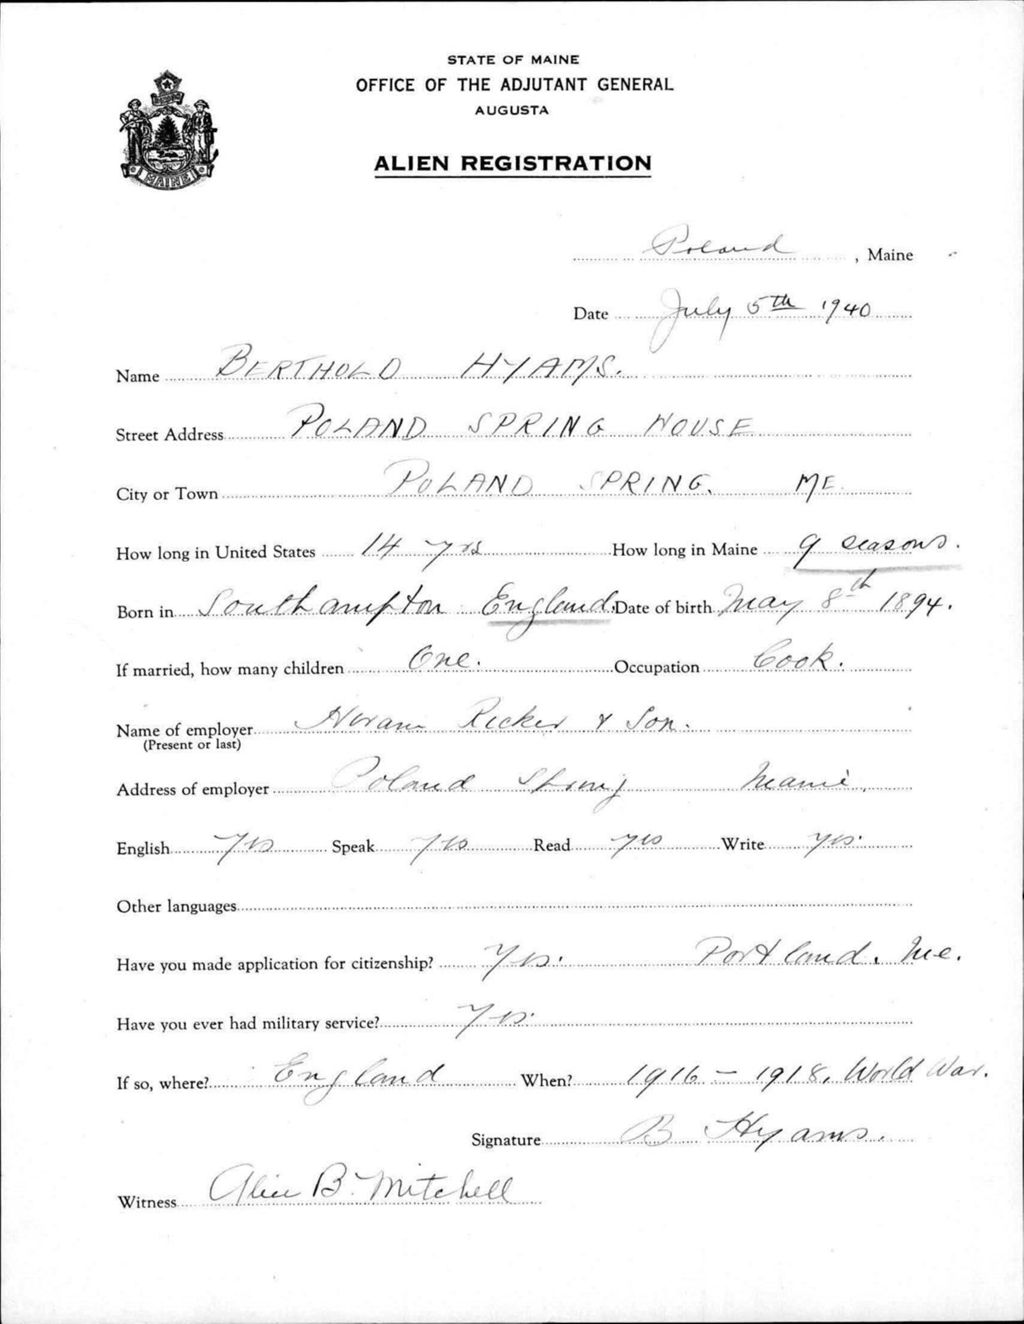 STATE OF MAINE
OFFICE OF THE ADJUTANT GENERAL
AUGUSTA
ALIEN REGISTRATION
MAINE
Poland, Maine
Date July 5th 1940
Name BERTHOLD HYAMS.
Street Address POLAND SPRING HOUSE
City or Town POLAND SPRING. ME.
How long in United States 14 yrs How long in Maine 9 seasons.
Born in Southampton England. Date of birth May 8th 1894.
If married, how many children One. Occupation Cook.
Name of employer Hiram Ricker & Son.
(Present or last)
Address of employer Poland Spring Maine.
English Yes Speak Yes Read yes Write yes.
Other languages
Have you made application for citizenship? Yes. Portland. Me.
Have you ever had military service? Yes.
If so, where? England When? 1916 - 1918. World War.
Signature B Hyams.
Witness Alice B. Mitchell